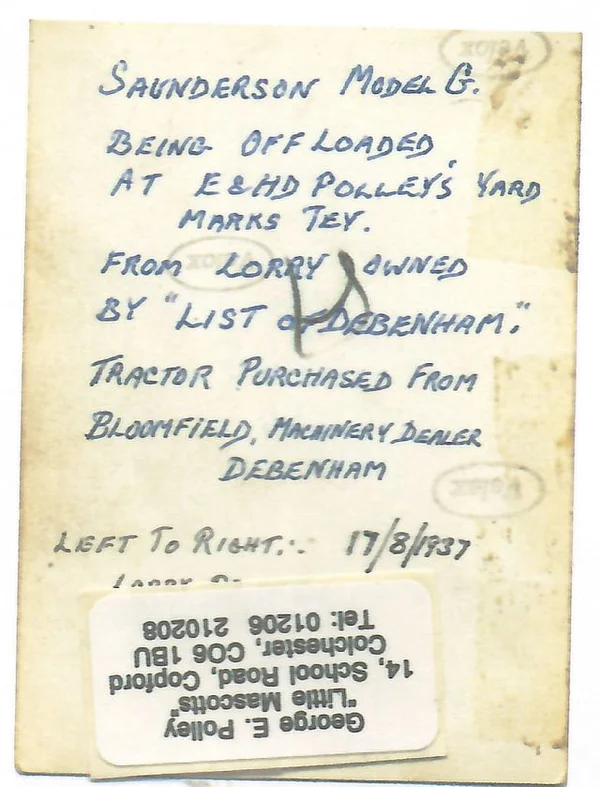 SAUNDERSON MODEL G.
BEING OFF LOADED,
AT E & HD POLLEY'S YARD
MARKS TEY.
FROM LORRY OWNED
BY "LIST of DEBENHAM."
TRACTOR PURCHASED FROM
BLOOMFIELD, MACHINERY DEALER
DEBENHAM
LEFT TO RIGHT:. 17/8/1937
LORRY
George E. Polley
"Little Mascotts"
14, School Road, Copford
Colchester, CO6 1BU
Tel: 01206 210208
Velox
Velox
Velox